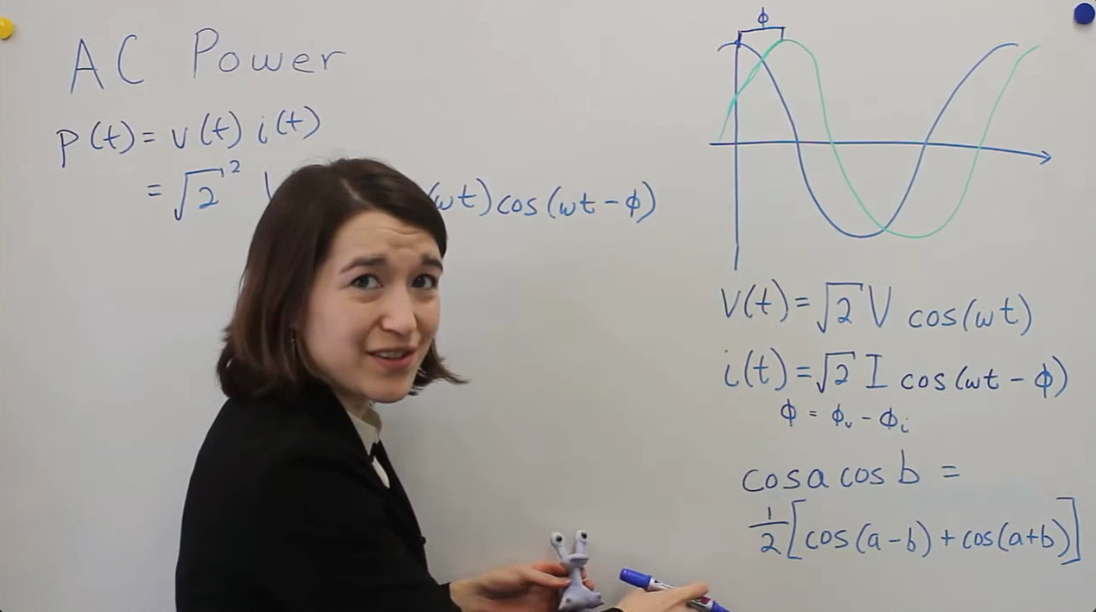 AC Power
p(t) = v(t) i(t)
= √2² cos(ωt - ϕ)
ϕ
v(t) = √2 V cos(ωt)
i(t) = √2 I cos(ωt - ϕ)
ϕ = ϕᵥ - ϕᵢ
cos a cos b =
1/2 [cos(a-b) + cos(a+b)]